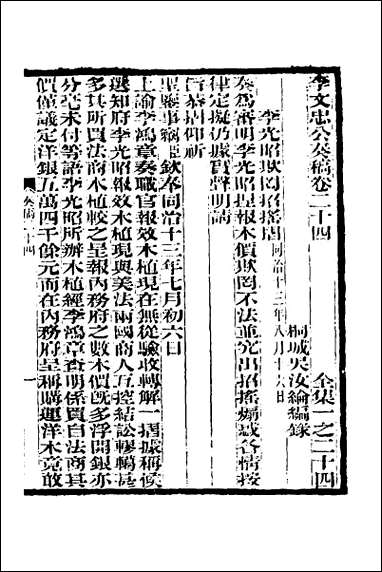 李文忠公奏稿卷二十四
全集一之二十四
桐城吳汝綸編錄
李光昭欺罔招搖摺 同治十三年八月十六日
奏爲審明李光昭捏報木價欺罔不法並究出招搖煽惑各情按
律定擬仍據實聲明請
旨恭摺仰祈
聖鑒事竊臣欽奉同治十三年七月初六日
上諭李鴻章奏職官報效木植現在無從驗收轉解一摺據稱候
選知府李光昭報效木植現與美法兩國商人互控結訟轇轕甚
多其所買法商木植較之呈報內務府之數木價旣多浮開銀亦
分毫未付等語李光昭所辦木植經李鴻章查明係買自法商其
價僅議定洋銀五萬四千餘元而在內務府呈稱購運洋木竟敢
奏稿二十四
一